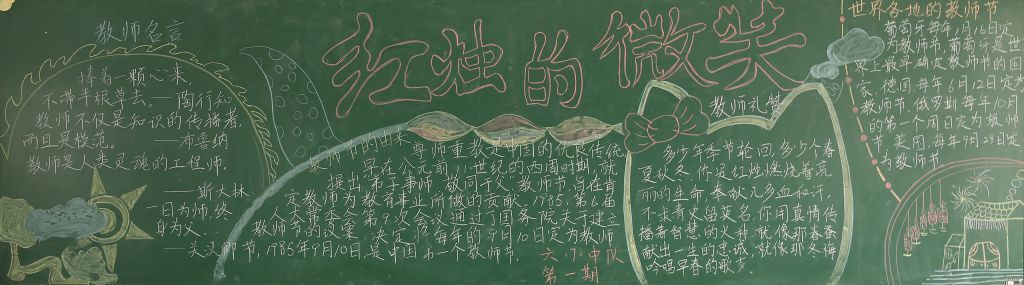 教师名言
捧着一颗心来
不带半根草去。——陶行知
教师不仅是知识的传播者,
而且是模范。——布鲁纳
教师是人类灵魂的工程师。
——斯大林
一日为师,终
身为父。
——关汉卿
红烛的微笑
教师节的由来
尊师重教是中国的优良传统
早在公元前11世纪的西周时期,就
提出"弟子事师,敬同于父"教师节,旨在肯
定教师为教育事业所做的贡献。1985,第6届
人大常委会第9次会议通过了国务院关于建立
教师节的议案,决定将每年的9月10日定为教师
节,1985年9月10日,是中国第一个教师节.
六、下中队
第一期
教师礼赞
多少年季节轮回,多少个春
夏秋冬,你是红烛燃烧着亮
丽的生命,奉献几多血和汗,
不求青史留英名,你用真情传
播着智慧的火种,就像那春蚕
献出一生的忠诚,就像那冬梅
吟唱早春的歌梦。
世界各地的教师节
葡萄牙每年1月16日定
为教师节,葡萄牙是世
界上最早确定教师节的国
家。德国每年6月12日定为
教师节,俄罗斯每年10月
的第一个周日定为教师
节,美国,每年9月28日定
为教师节